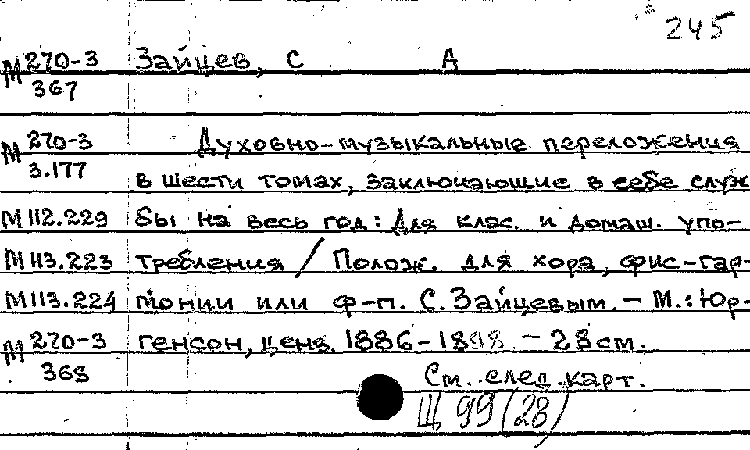 245
М 270-3 Зайцев, С А
367
М 270-3 Духовно-музыкальные переложения
3.177 в шести томах, заключающие в себе служ
М 112.229 бы на весь год: Для клас. и домаш. упо-
М 113.223 требления / Полож. для хора, фис-гар-
М 113.224 монии или ф-п. С. Зайцевым. – М.: Юр-
М 270-3 генсон, ценз. 1886-1898. – 28 см.
368 См. след. карт.
Щ 99(28)